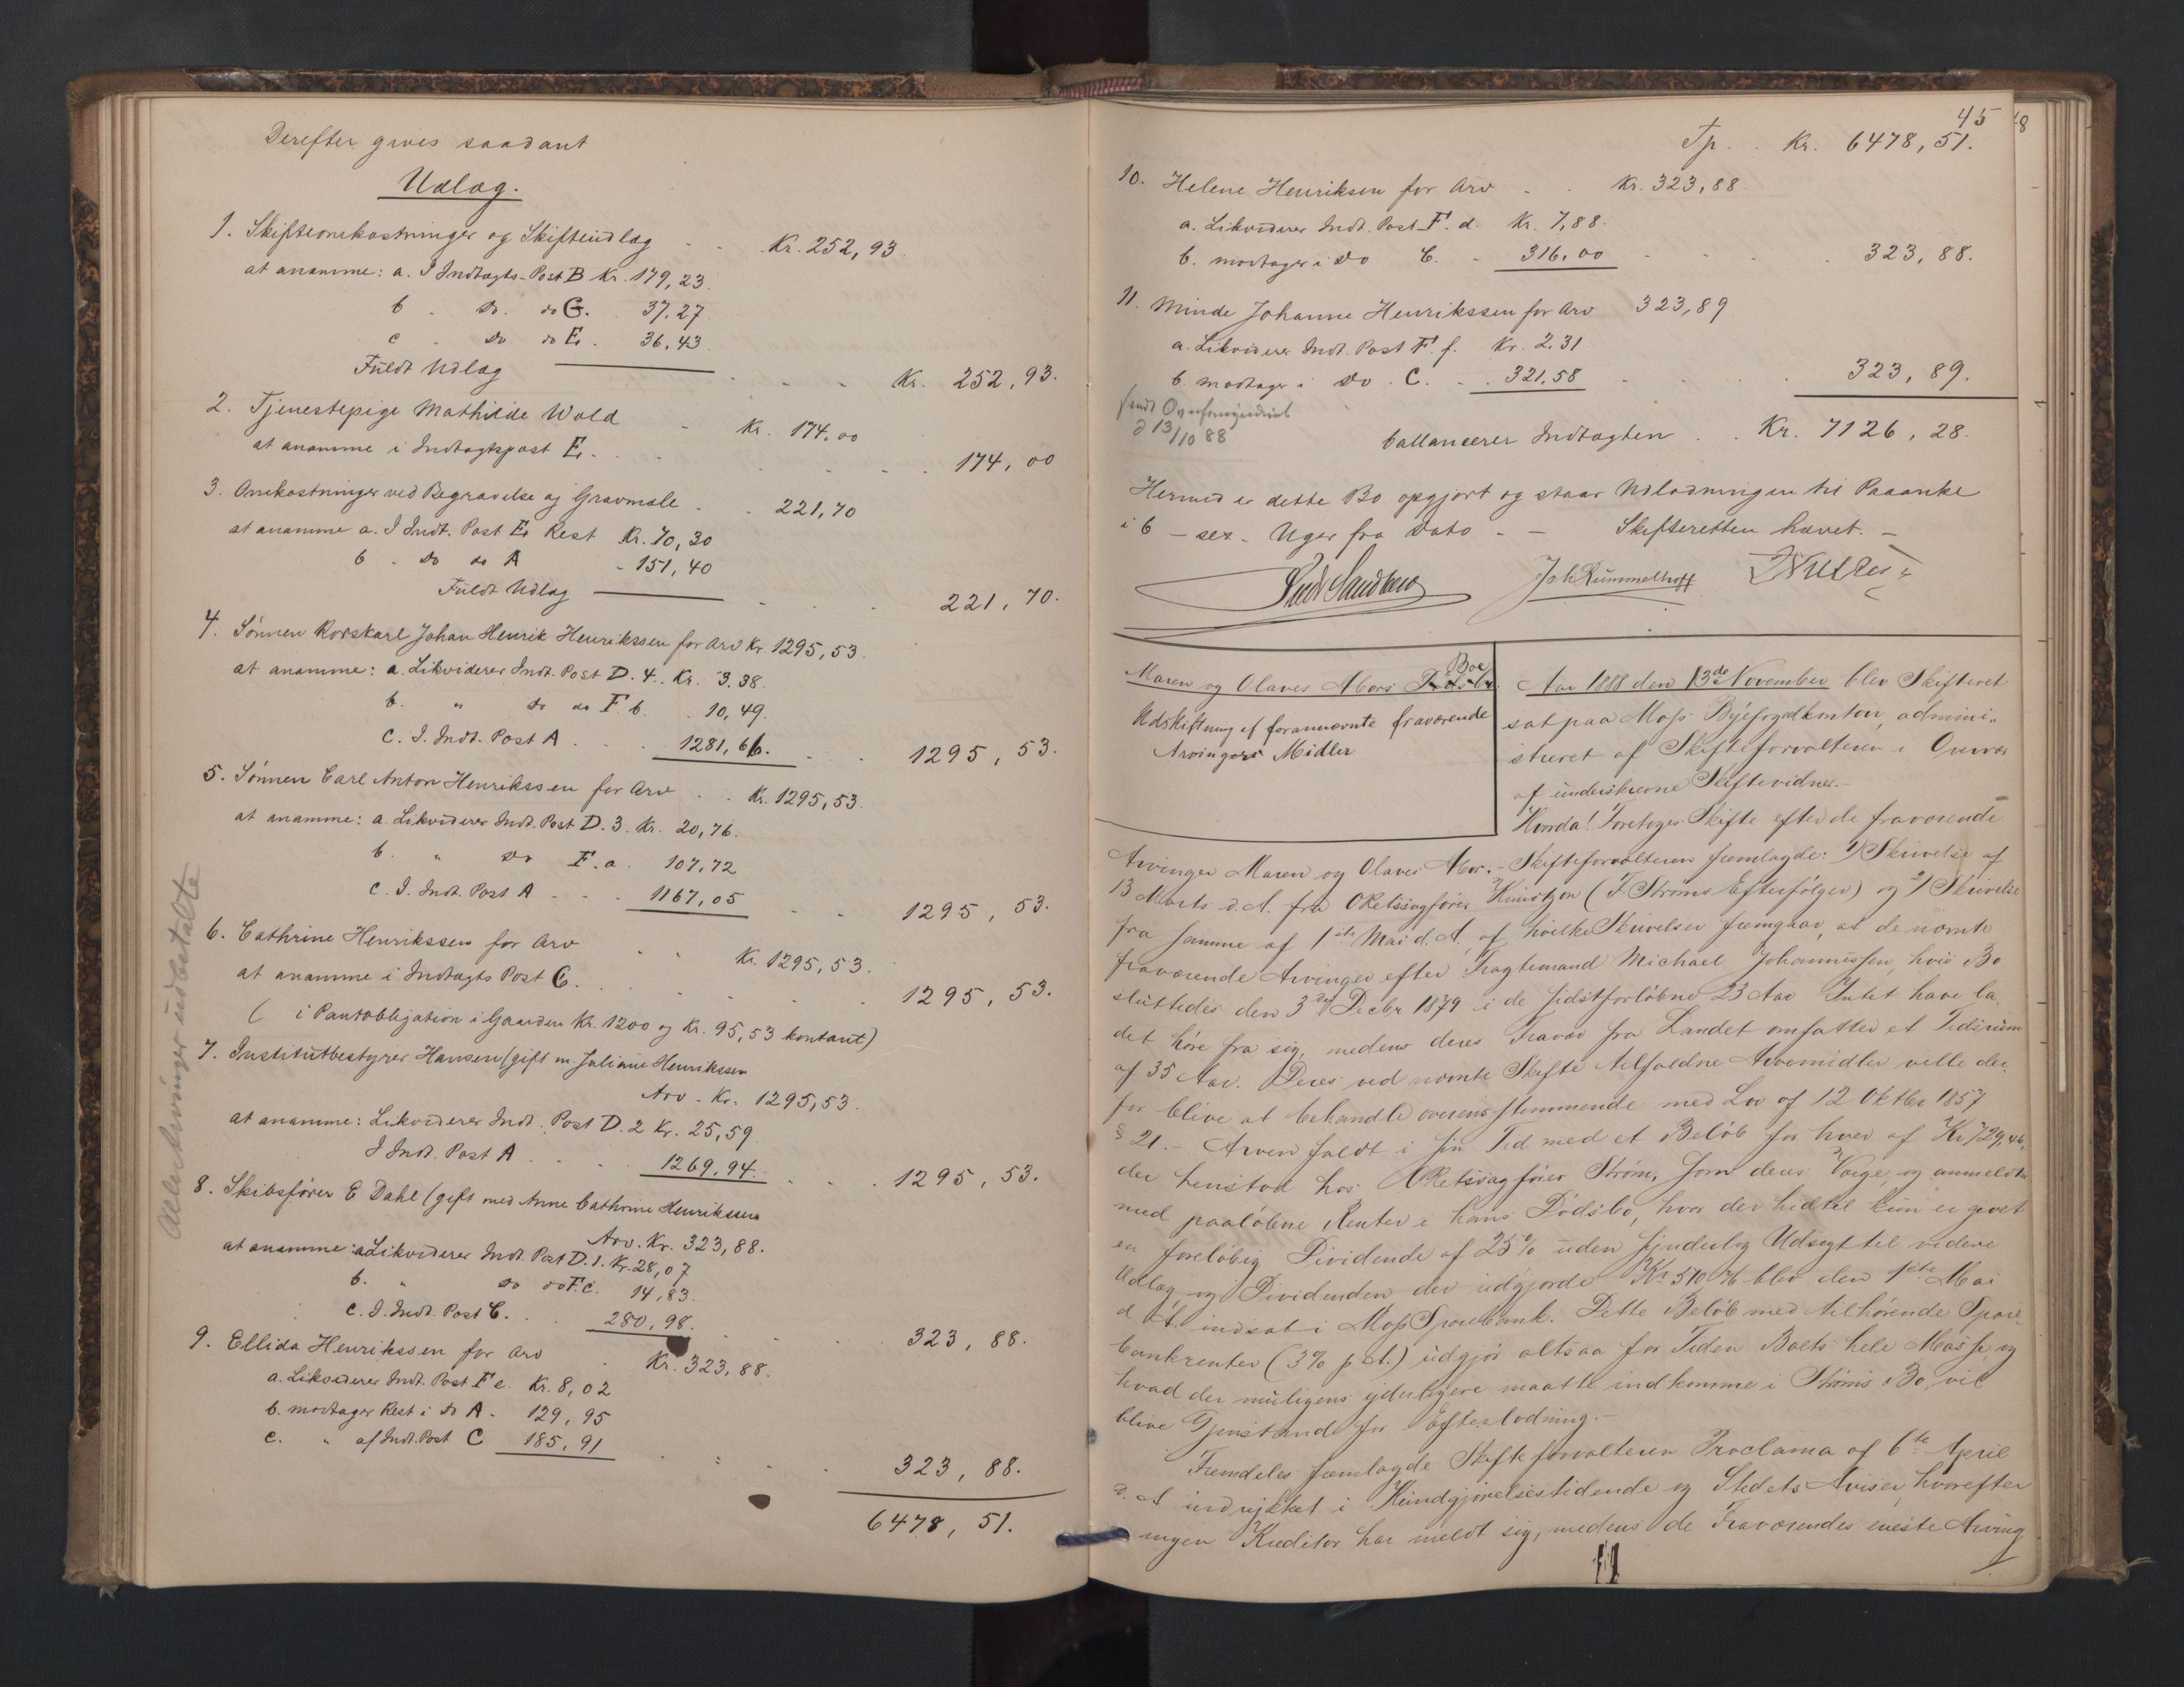 Derefter gives saadant
Udlæg.
1. Skifteomkostninger og Skifteudlæg - - Kr. 252,93
at anamme: a. I Indtægts-Post B Kr. 179,23
b . do. do G. . 37.27
c . do do E. . 36,43
Fuldt Udlæg - - - Kr. 252,93.
2. Tjenestepige Mathilde Wold - Kr. 174.00
at anamme i Indtægtspost E. - - - 174,00
3. Omkostninger ved Begravelse og Gravmæle - - 221,70
at anamme a. I Indt. Post E. Rest Kr. 70,30
b . do do A - 151,40
Fuldt Udlæg - - - 221,70.
4. Sønnen Korskarl Johan Henrik Henrikssen for Arv Kr 1295,53.
at anamme: a. Likviderer Indt. Post D. 4. Kr. 3.38.
b. " do do F. b. . 10,49.
c. I. Indt. Post A . . . 1281,66. - - 1295,53.
5. Sønnen Carl Anton Henrikssen for Arv . . Kr. 1295,53.
at anamme: a. Likviderer Indt. Post D. 3. Kr. 20,76.
b. " do F. a. 107,72
c. I. Indt. Post A - - - 1167,05 - - - 1295,53.
6. Cathrine Henrikssen for Arv - - Kr. 1295,53.
at anamme i Indtægts Post C. . . . 1295,53.
( i Pantobligation i Gaarden Kr. 1200 og Kr. 95,53 kontant)
7. Institutbestyrer Hansen (gift m. Juliane Henrikssen
Arv - Kr. 1295,53.
at anamme: Likviderer Indt. Post D. 2 Kr. 25,59
I Indt. Post A . . . 1269,94. - - - 1295,53.
8. Skibsfører E Dahl (gift med Anne Cathrine Henrikssen
Arv. Kr. 323,88.
at anamme: a Likviderer Indt. Post D. 1. Kr. 28,07
b. " do do F. c. 14,83.
c. I. Indt. Post C. . 280,98. - - - 323,88.
9. Ellida Henrikssen for Arv . Kr. 323,88.
a. Likviderer Indt. Post F e. Kr. 8,02
b. modtager Rest i do A - 129,95
c. " af Indt. Post C 185,91 - - - 323,88.
6478,51.
Udskrivninger udbestalte
45
48
Tp. . Kr. 6478,51.
10. Helene Henriksen for Arv - . Kr. 323,88.
a. Likviderer Indt. Post F. d. Kr. 7,88.
b. modtager i do C. - 316,00 - - - 323,88.
11. Minde Johanne Henrikssen for Arv 323,89
a. Likviderer Indt. Post F. f. Kr. 2.31
b. modtager i do . C. - . 321,58 - - - 323,89.
sendt Overformynderiet
d 13/10 88
ballancerer Indtægten . . Kr. 7126,28.
Hermed er dette Bo opgjort og staar Udlodningen til Paaanke
i 6 - sex - Uger fra Dato - - Skifteretten hævet. -
Joh Rummelhoff
Maren og Olaves Abors Boe
Udskiftning af forannævnte fraværende
Arvingers Midler
Aar 1888 den 13de November blev Skifteret
sat paa Moss Byfogedkontor, admini-
streret af Skifteforvalteren i Overvær
af underskrevne Skiftevidner.-
Hvorda! Foretoges Skifte efter de fraværende
Arvinger Maren og Olaves Abor. - Skifteforvalteren fremlagde: 1) Skrivelse af
13 Marts d. A. fra ORetssagfører Knudtzon (F Strøms Efterfølger) og 2) Skrivelse
fra samme af 1ste Mai d. A. af hvilke Skrivelser fremgaar, at de nævnte
fraværende Arvinger efter Fragtemand Michael Johannessen, hvis Bo
sluttedes den 3die Decbr 1879 i de sidstforløbne 23 Aar Intet have la-
det høre fra sig, medens deres Fravær fra Landet omfatter et Tidsrum
af 35 Aar. Deres ved nævnte Skifte tilfaldne Arvemidler ville der-
for blive at behandle overensstemmende med Lov af 12 Oktbr 1857
§ 21. - Arven faldt i sin Tid med et Beløb for hver af Kr 729,46,
der henstod hos ORetssagfører Strøm, som deres Værge, og anmeldtes
med paaløbne Renter i hans Dødsbo, hvor der hidtil kun er givet
en foreløbig Dividende af 25% uden synderlig Udsigt til videre
Udlæg og Dividenden der udgjorde Kr 510,76 blev den 1ste Mai
d. A. indsat i Moss Sparebank. Dette Beløb med tilhørende Spare-
bankrenter (3% p. A.) udgjør altsaa for Tiden Boets hele Masse, og
hvad der muligens yderligere maatte indkomme i Strøms Bo, vil
blive Gjenstand for Efterlodning.-
Fremdeles fremlagde Skifteforvalteren Proclama af 6te April
d. A. indrykket i Kundgjørelsestidende og Stedets Aviser, hvorefter
ingen Kreditor har meldt sig, medens de Fraværendes eneste Arving